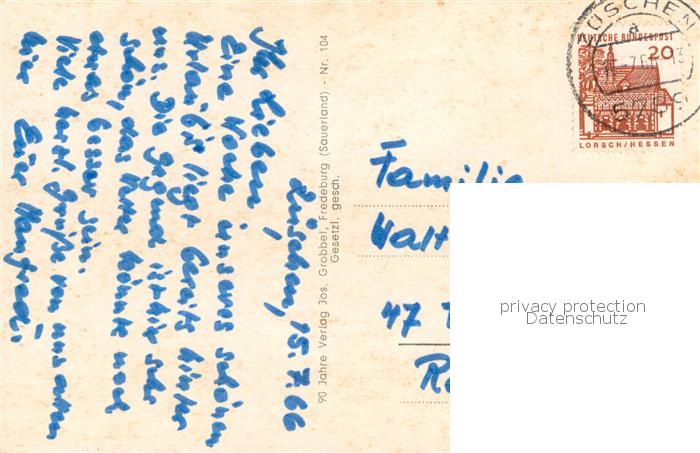 Züschen, 15.7.66
Ihr Lieben
Eine Woche unseres schönen
Urlaubs liegt bereits hinter
uns. Die Gegend ist sehr
schön, das Wetter könnte noch
etwas besser sein.
Viele herzl. Grüße von uns allen
Eure
90 Jahre Verlag Jos. Grobbel, Fredeburg (Sauerland) - Nr. 104
Gesetzl. gesch.
ÜSCHEN
a
DEUTSCHE BUNDESPOST
20
LORSCH/HESSEN
Familie
Walt
47
privacy protection
Datenschutz